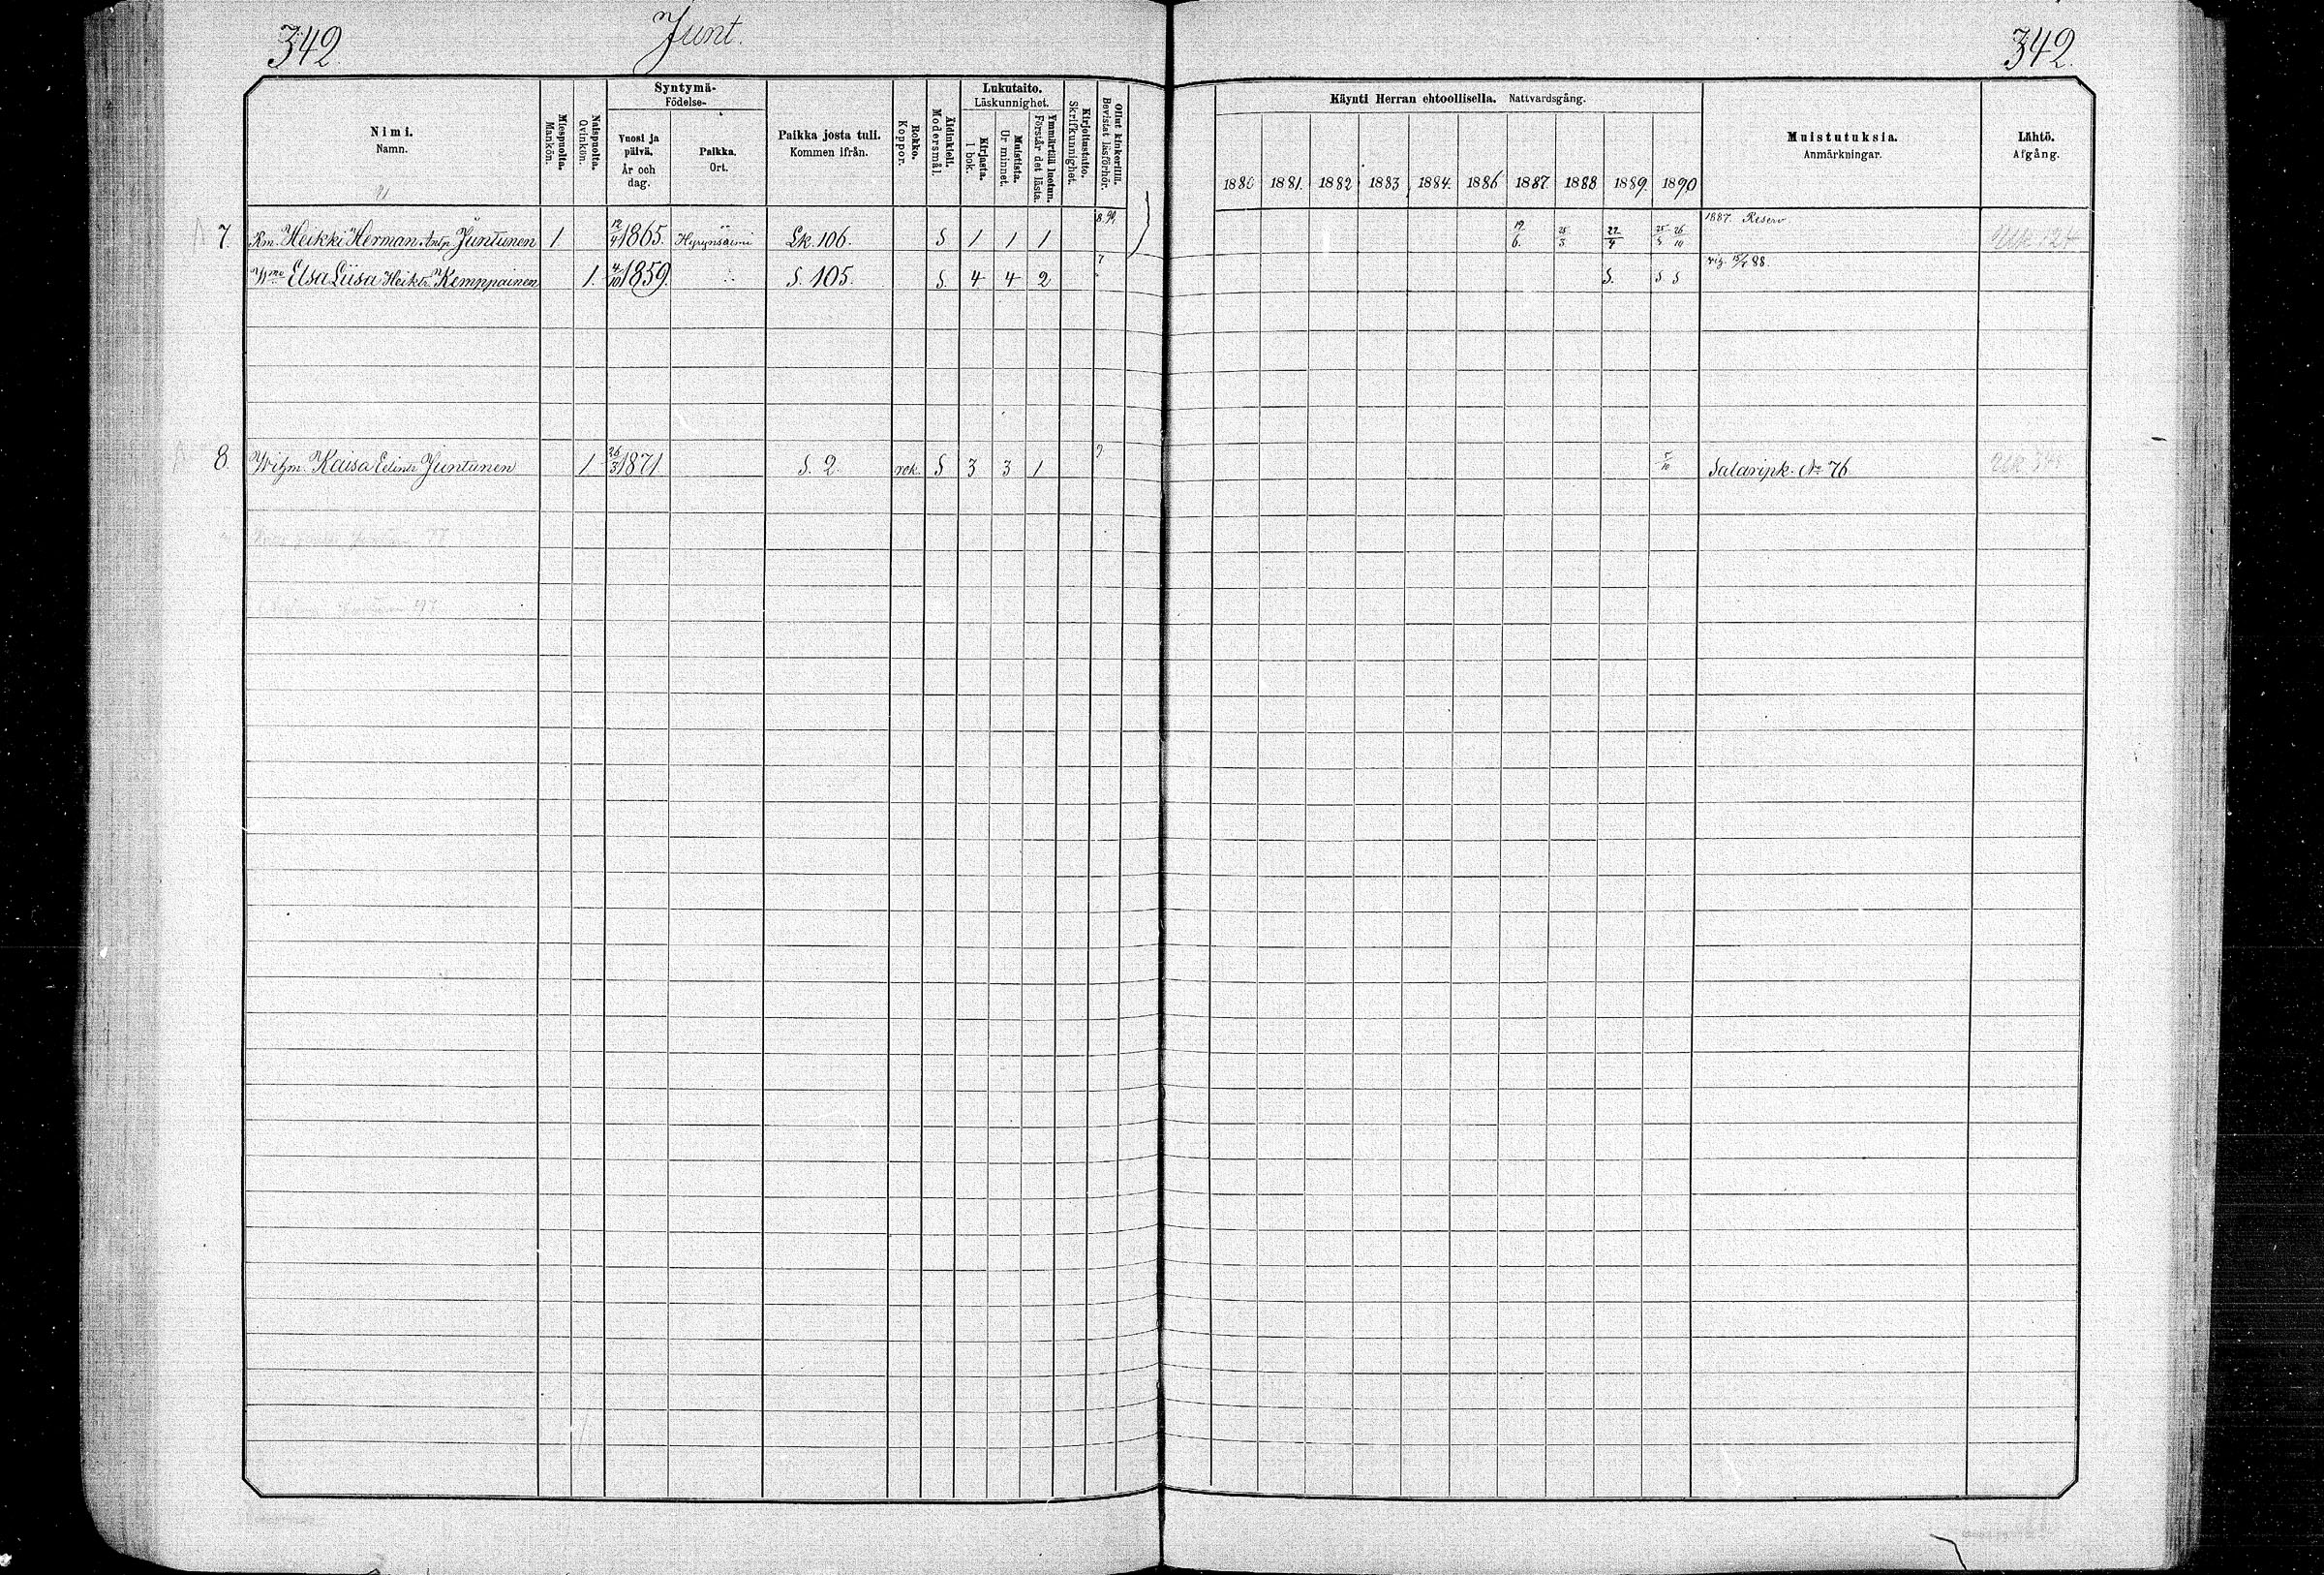 342. Junt. 342.
Nimi. Namn.
Miespuolta. Mankön.
Naispuolta. Qvinkön.
Syntymä- Födelse-
Vuosi ja päivä. År och dag.
Paikka. Ort.
Paikka josta tuli. Kommen ifrån.
Rokko. Koppor.
Äidinkieli. Modersmål.
Lukutaito. Läskunnighet.
Kirjasta. I bok.
Muistista. Ur minnet.
Ymmärtää luetun. Förstår det lästa.
Kirjoitustaito. Skrifkunnighet.
Ollut kinkerillä. Bevistat läsförhör.
Käynti Herran ehtoollisella. Nattvardsgång.
1880 1881. 1882 1883 1884. 1886 1887. 1888 1889. 1890
Muistutuksia. Anmärkningar.
Lähtö. Afgång.
7. Rm. Heikki Herman Antp. Juntunen 1. 12/4 1865. Hyrynsalmi Lk. 106. S 1 1 1 8. 90. 19/6. 25/3 22/4 25/3 26/10 1887. Reserv. Uk 124
Wmo Elsa Liisa Heikt. Kemppainen 1. 4/10 1859. S. 105. S. 4 4 2 7 S. S S vig. 15/4 88.
8. Kaisa Juntunen 1 26/3 1871. S. 2. rok. S 3 3 1 9 5/10 Salavipk. No 76